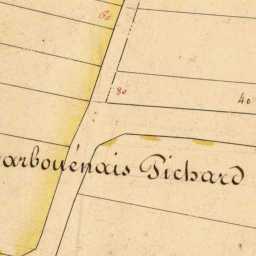 60
80
40
arbouénais Pichard